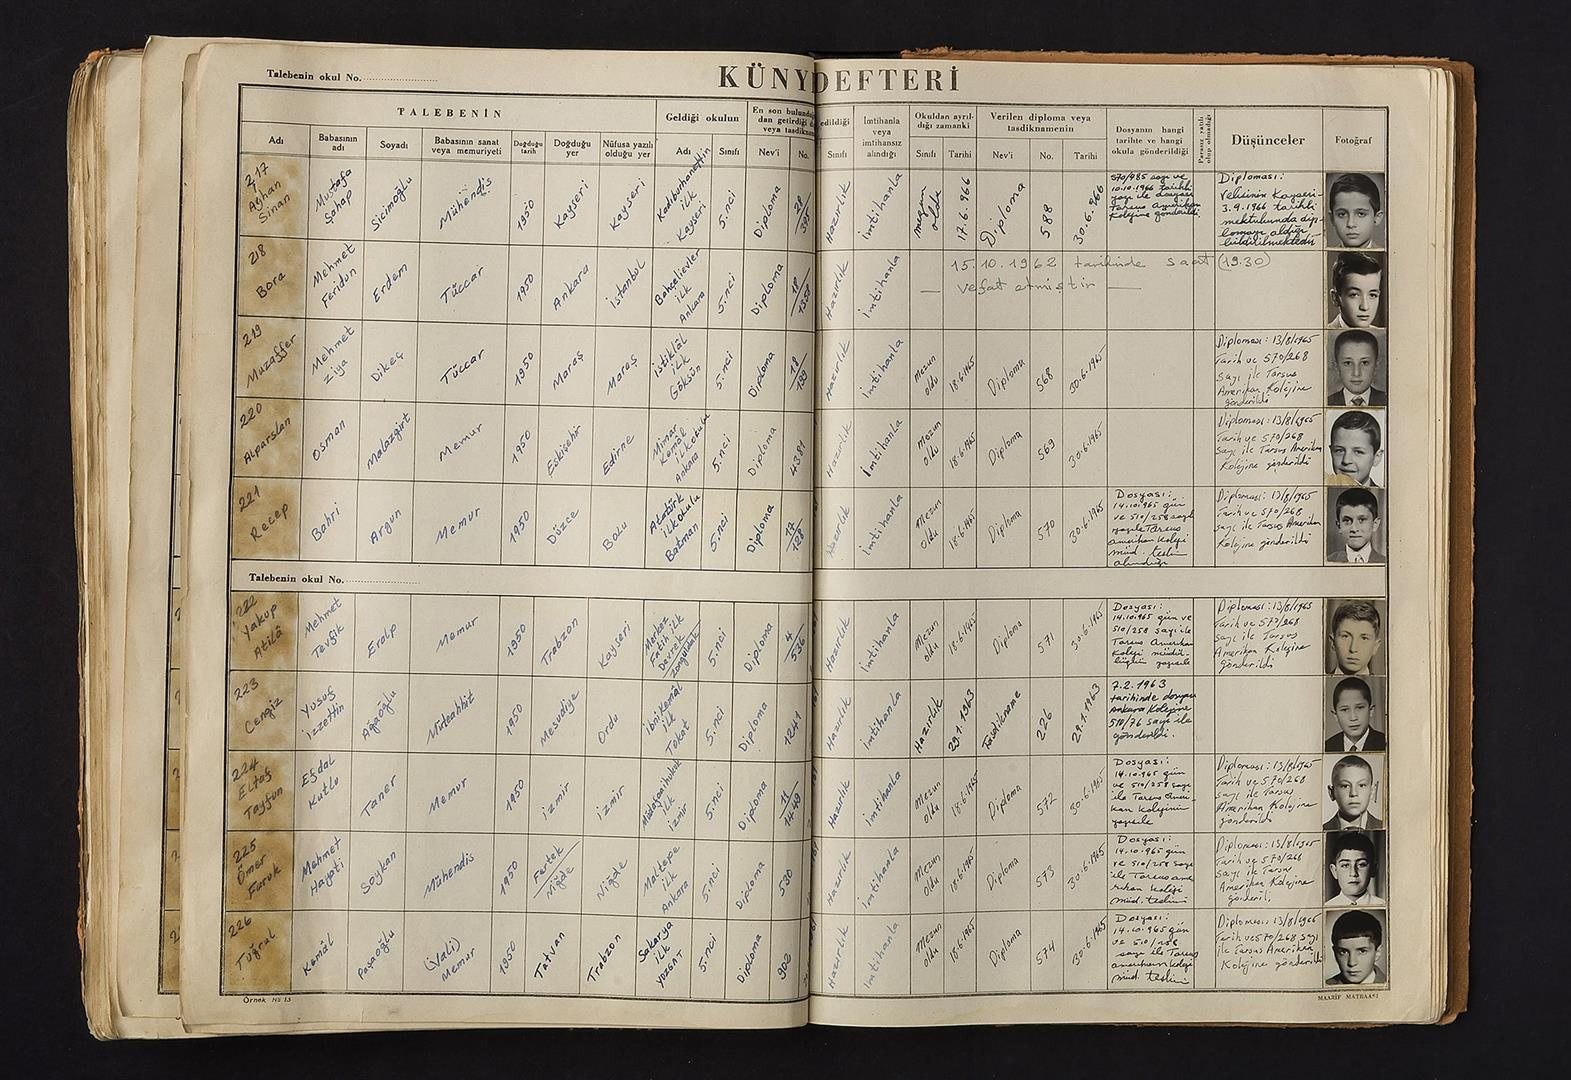 Talebenin okul No.
KÜNYDEFTERİ
TALEBENİN
Geldiği okulun
En son bulundu
dan getirdiği d
veya tasdikna
edildiği
İmtihanla veya imtihansız alındığı
Okuldan ayrıldığı zamanki
Verilen diploma veya tasdiknamenin
Dosyanın hangi tarihte ve hangi okula gönderildiği
Parasız yatılı olup olmadığı
Düşünceler
Fotoğraf
Adı
Babasının adı
Soyadı
Babasının sanat veya memuriyeti
Doğduğu tarih
Doğduğu yer
Nüfusa yazılı olduğu yer
Adı
Sınıfı
Nev'i
No.
Sınıfı
Sınıfı
Tarihi
Nev'i
No.
Tarihi
217 Ayhan Sinan
Mustafa Şahap
Sicimoğlu
Mühendis
1950
Kayseri
Kayseri
Kadıburhanettin ilk Kayseri
5.nci
Diploma
28/395
Hazırlık
İmtihanla
mezun oldu
17.6.966
Diploma
588
30.6.966
570/485 sayı ve
10.10.1966 tarihli
yazı ile dosyası
Tarsus Amerikan
Kolejine gönderildi.
Diploması:
Velisinin Kayseri-
3.9.1966 tarihli
mektubunda dip-
lomayı aldığı
bildirilmektedir
218 Bora
Mehmet Feridun
Erdem
Tüccar
1950
Ankara
İstanbul
Bahçelievler ilk Ankara
5.nci
Diploma
18/1358
Hazırlık
İmtihanla
15.10.1962 tarihinde saat (19.30)
— vefat etmiştir —
219 Muzaffer
Mehmet Ziya
Dikeç
Tüccar
1950
Maraş
Maraş
İstiklâl ilk Göksun
5.nci
Diploma
19/199
Hazırlık
İmtihanla
Mezun oldu
18.6.1965
Diploma
568
30.6.1965
Diploması: 13/8/1965
Tarih ve 570/268
sayı ile Tarsus
Amerikan Kolejine
gönderildi
220 Alparslan
Osman
Malazgirt
Memur
1950
Eskişehir
Edirne
Mimar Kemâl ilkokulu Ankara
5.nci
Diploma
4381
Hazırlık
İmtihanla
Mezun oldu
18.6.1965
Diploma
569
30.6.1965
Diploması: 13/8/1965
Tarih ve 570/268
sayı ile Tarsus Amerikan
Kolejine gönderildi
221 Recep
Bahri
Argun
Memur
1950
Düzce
Bolu
Atatürk ilkokulu Batman
5.nci
Diploma
17/188
Hazırlık
İmtihanla
Mezun oldu
18.6.1965
Diploma
570
30.6.1965
Dosyası:
14.10.965 gün
ve 510/258 sayılı
yazı ile Tarsus
amerikan Koleji
müd. teslim
alındığı
Diploması: 13/8/1965
Tarih ve 570/268
sayı ile Tarsus Amerikan
Kolejine gönderildi
Talebenin okul No.
222 Yakup Atilâ
Mehmet Tevfik
Eralp
Memur
1950
Trabzon
Kayseri
Merkez Fatih ilk Devrek Zonguldak
5.nci
Diploma
4/536
Hazırlık
İmtihanla
Mezun oldu
18.6.1965
Diploma
571
30.6.1965
Dosyası:
14.10.965 gün ve
510/258 sayı ile
Tarsus Amerikan
Koleji müdür-
lüğün yazısıle
Diploması: 13/8/1965
Tarih ve 570/268
sayı ile Tarsus
Amerikan Kolejine
gönderildi
223 Cengiz
Yusuf İzzettin
Ağaoğlu
Müteahhit
1950
Mesudiye
Ordu
İbni Kemâl ilk Tokat
5.nci
Diploma
1241
Hazırlık
İmtihanla
Hazırlık
29.1.1963
Tasdikname
226
29.1.1963
7.2.1963
tarihinde dosyası
Ankara Kolejine
510/76 sayı ile
gönderildi.
224 Eltaş Tayfun
Efdal Kutlu
Taner
Memur
1950
İzmir
İzmir
Müdafaaihukuk ilk İzmir
5.nci
Diploma
11/1449
Hazırlık
İmtihanla
Mezun oldu
18.6.1965
Diploma
572
30.6.1965
Dosyası:
14.10.965 gün
ve 510/258 sayı
ile Tarsus Ameri-
kan Kolejinin
yazısıle
Diploması: 13/8/1965
Tarih ve 570/268
sayı ile Tarsus
Amerikan Kolejine
gönderildi
225 Ömer Faruk
Mehmet Hayati
Soykan
Mühendis
1950
Fertek/Niğde
Niğde
Maltepe ilk Ankara
5.nci
Diploma
530
Hazırlık
İmtihanla
Mezun oldu
18.6.1965
Diploma
573
30.6.1965
Dosyası:
14.10.965 gün
ve 510/258 sayı
ile Tarsus ame-
rikan Koleji
müd. teslimi
Diploması: 13/8/1965
Tarih ve 570/268
sayı ile Tarsus
Amerikan Kolejine
gönderil.
226 Tuğrul
Kemâl
Paşaoğlu
(Vali) Memur
1950
Tatvan
Trabzon
Sakarya ilk Yozgat
5.nci
Diploma
902
Hazırlık
İmtihanla
Mezun oldu
18.6.1965
Diploma
574
30.6.1965
Dosyası:
14.10.965 gün
ve 510/258
sayı ile Tarsus
amerikan Koleji
müd. teslimi
Diploması: 13/8/1965
Tarih ve 570/268 sayı
ile Tarsus Amerikan
Kolejine gönderildi
Örnek No 13
MAARİF MATBAASI